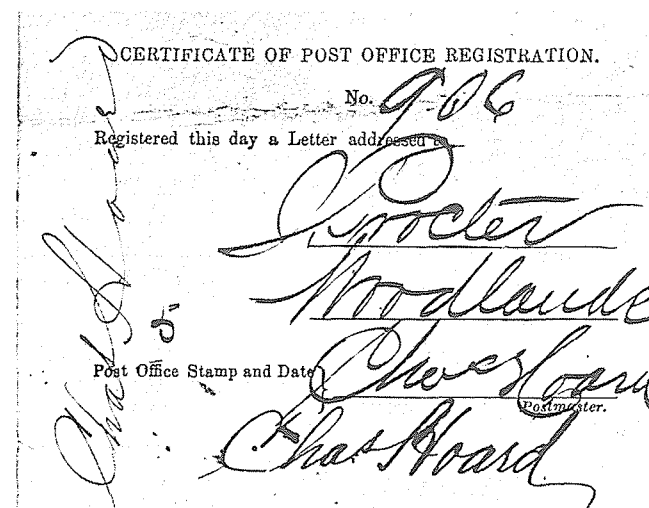 CERTIFICATE OF POST OFFICE REGISTRATION.
No. 906
Registered this day a Letter addressed to
Procter
Woodlands
Post Office Stamp and Date Chas Hoard
Postmaster.
Chas Hoard
Chas Hoard